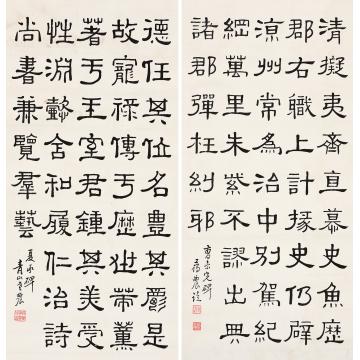 清擬夷齊直慕史魚歷
郡右職上計掾史仍辟
涼州常為治中別駕紀
綱萬里朱紫不謬出典
諸郡彈枉糾邪
德任其位名豐其爵是
故寵祿傳于歷世策薰
著于王室君鍾其美受
性淵懿含和履仁治詩
尚書兼覽羣藝
夏承碑